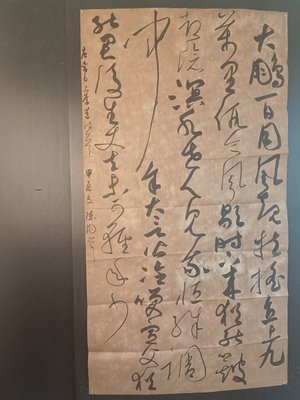 大鵬一日同風起扶搖直上九
萬里假令風歇時下來猶能簸
却滄溟水世人見我恒殊調
聞余大言皆冷笑宣父猶
能畏後生丈夫未可輕年少
李白上李邕